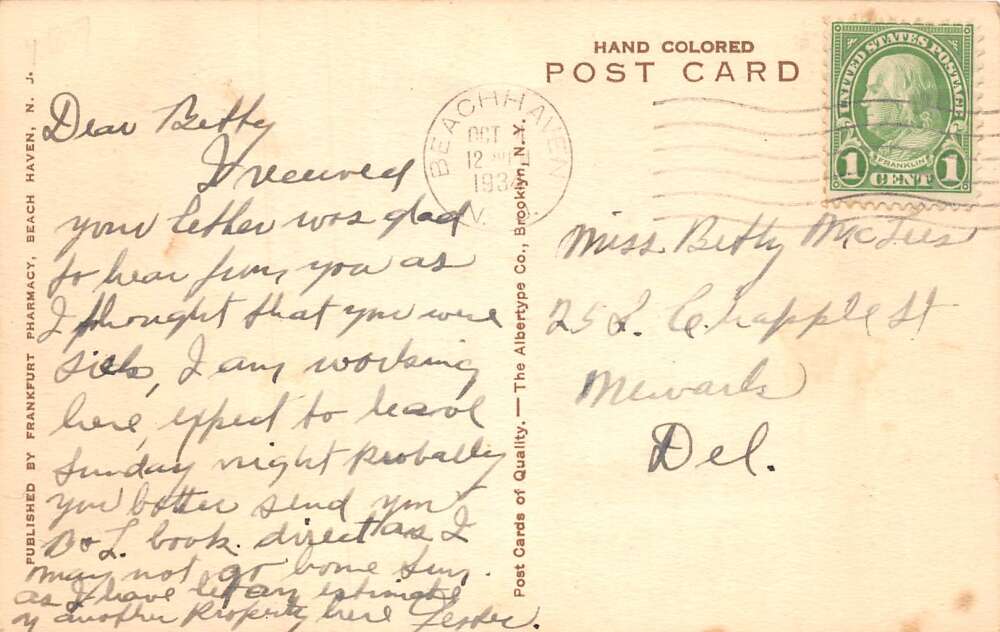 PUBLISHED BY FRANKFURT PHARMACY, BEACH HAVEN, N. J.
Dear Betty
I received
your letter was glad
to hear from you as
I thought that you were
sick, I am working
here, expect to leave
Sunday night Probably
you better send your
B & L. book. direct as I
may not go home Sun.
as I have to
another Property here Lester.
Post Cards of Quality. — The Albertype Co., Brooklyn, N.Y.
HAND COLORED
POST CARD
BEACH HAVEN
OCT
12
1934
UNITED STATES POSTAGE
FRANKLIN
1 CENT 1
Miss Betty McTees
25 L. Chapple St
Newark
Del.